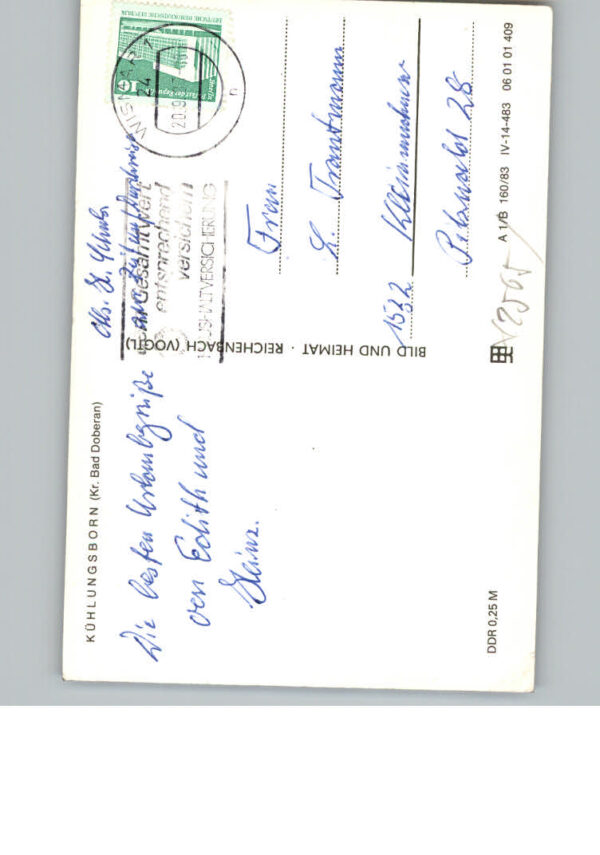 KÜHLUNGSBORN (Kr. Bad Doberan)
Die besten Urlaubsgrüße
von Edith und
Heinz.
DDR 0,25 M
BILD UND HEIMAT · REICHENBACH (VOGTL)
Abs. H.
WISMAR 1
24
20.9
DEUTSCHE DEMOKRATISCHE REPUBLIK
10
Gesamtwert
entsprechend
versichern
HAUSHALTVERSICHERUNG
Frau
L. Trautmann
1532 Kleinmachnow
28
A 1/B 160/83 IV-14-483 06 01 01 409